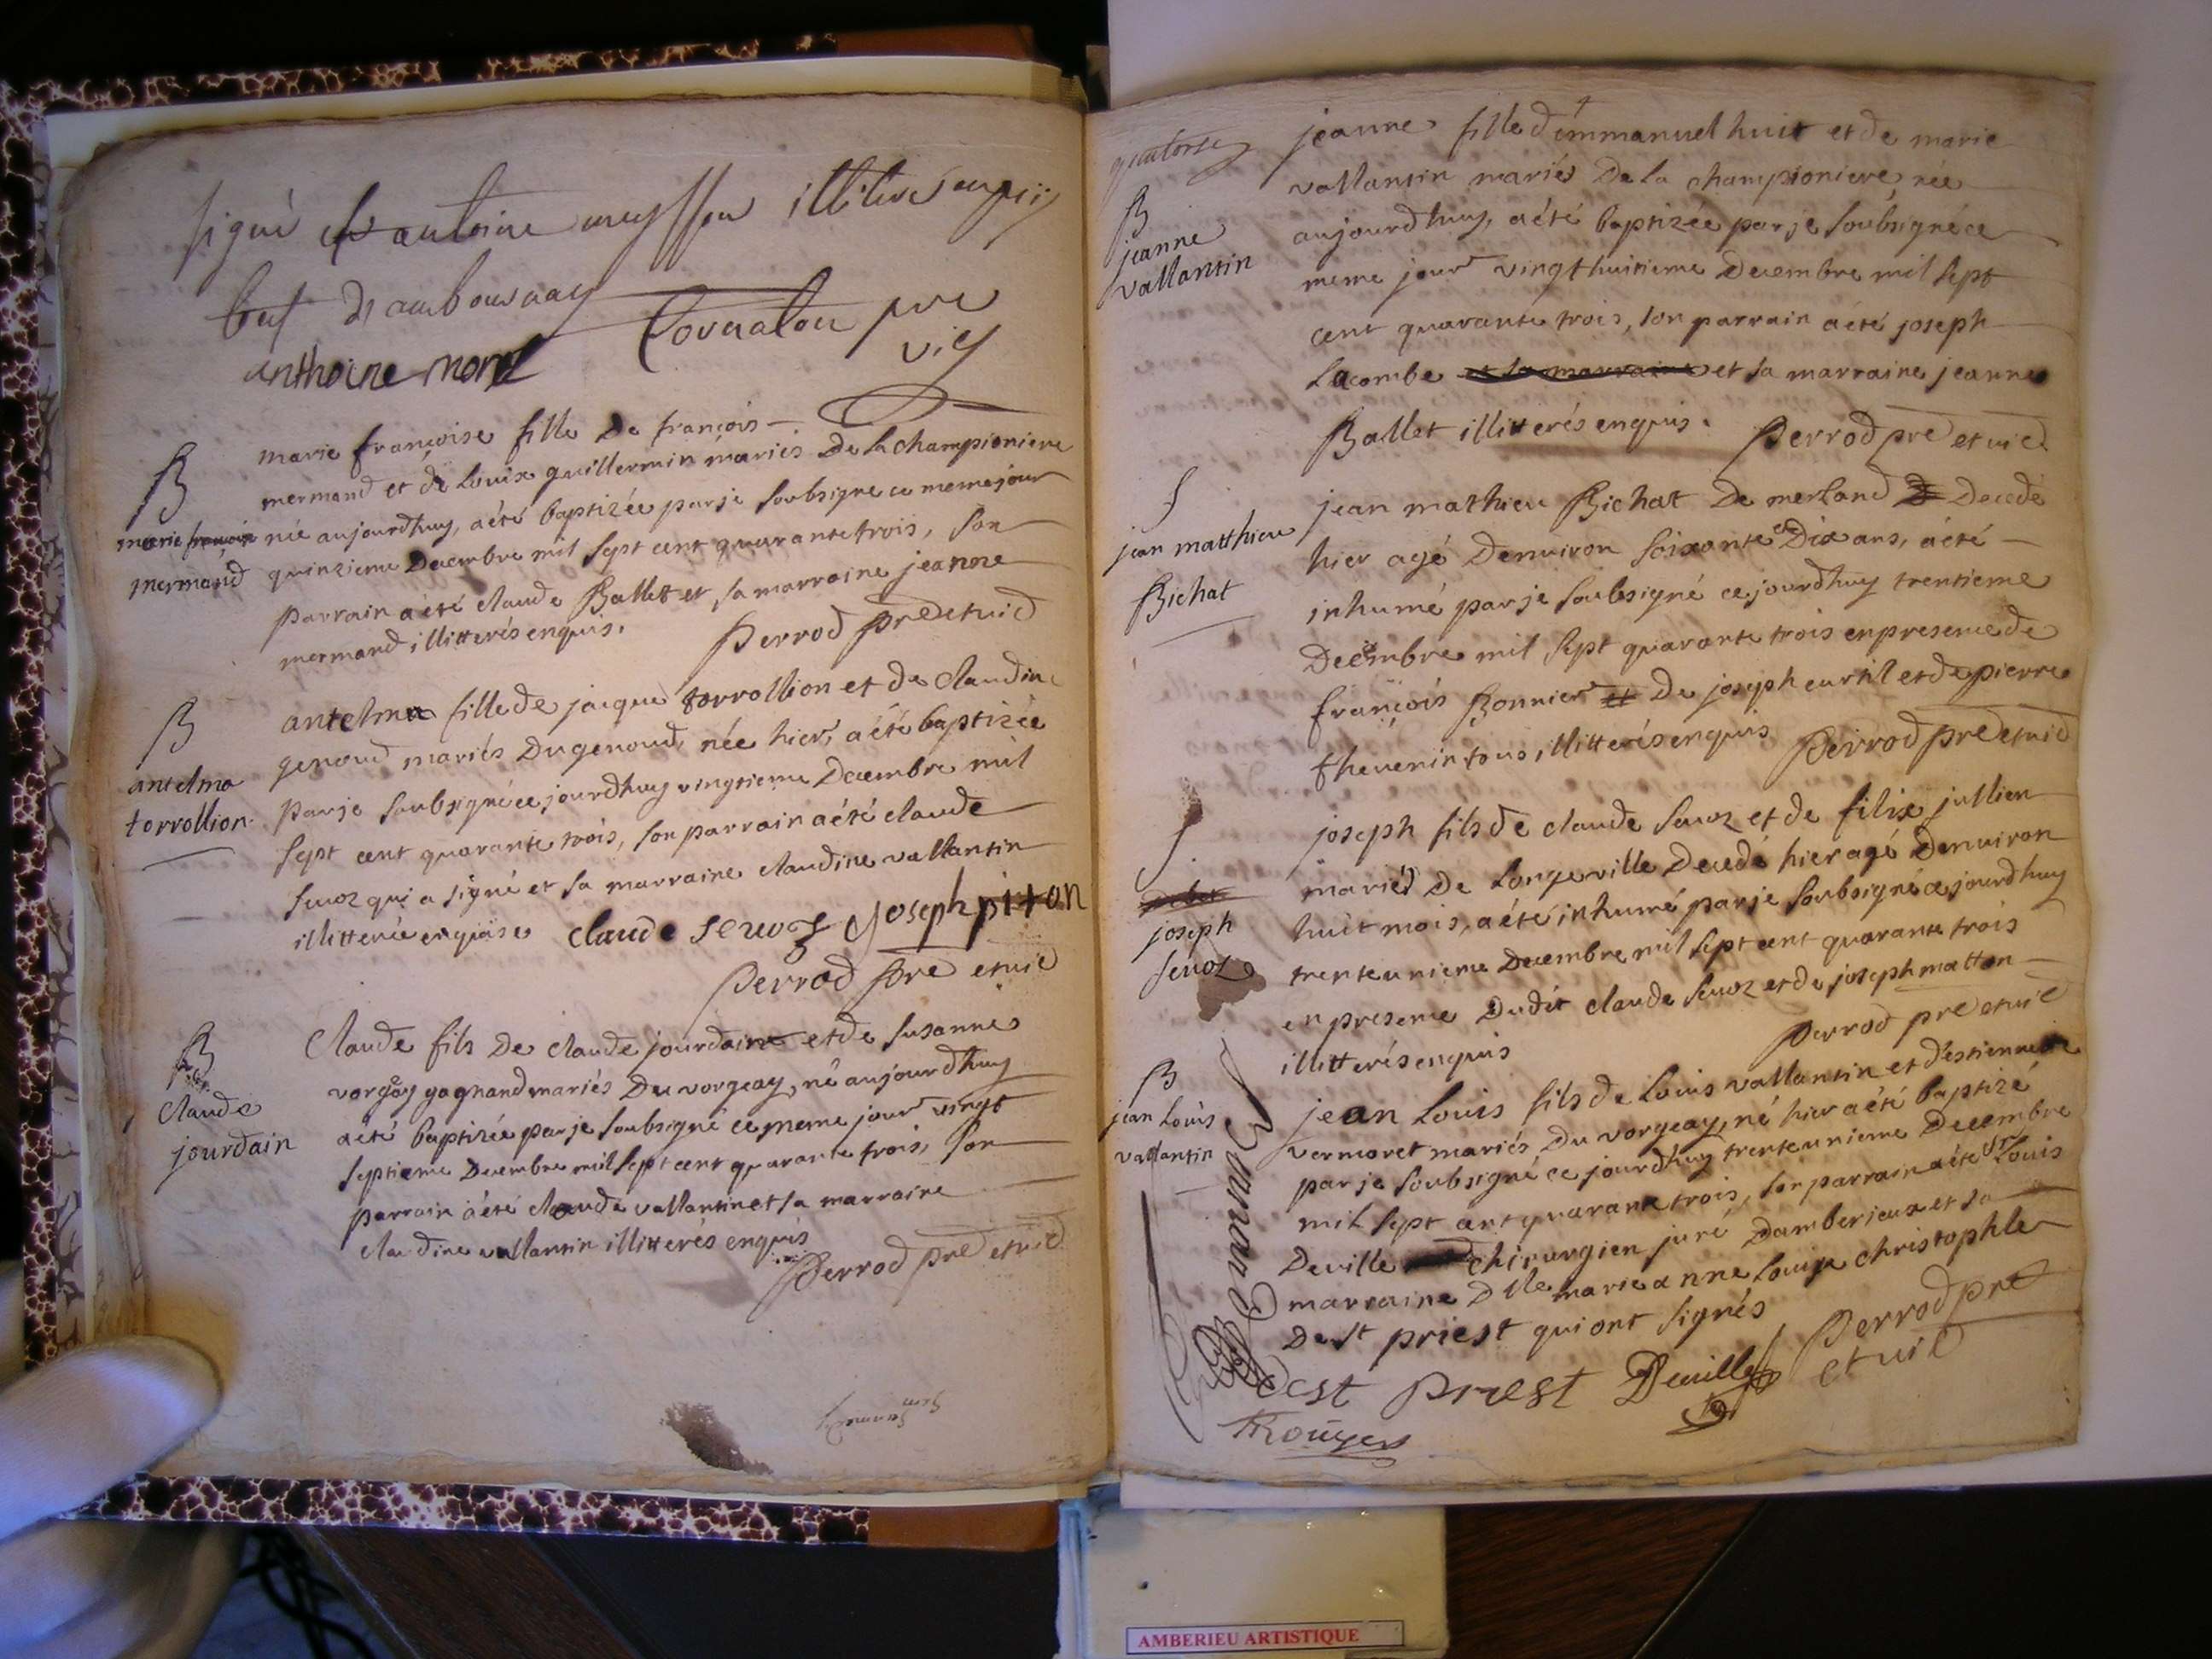 signé antoine illiteré enquis
anthoine morel
pre
vic
B
marie francoise
mermand
marie francoise fille De françois
mermand et de Louise guillermin mariés De la championiere
née aujourdhuy, a été baptizée par je soubsigné ce meme jour
quinzieme Decembre mil sept cent quarante trois, son
parrain a été claude Ballet et sa marraine jeanne
mermand, illitterés enquis. Perrod pre et vic
B
antelma
torrollion
antelma fille de jacque torrollion et de claudine
genoud mariés Du genoud, née hier, a été baptizée
par je soubsigné ce jourdhuy vingtieme Decembre mil
sept cent quarante trois, son parrain a été claude
sevoz qui a signé et sa marraine claudine vallantin
illitterée enquise claude sevoz joseph piton
Perrod pre et vic
B
claude
jourdain
Claude fils De claude jourdain et de susanne
vorgey gagnand mariés Du vorgeay, né aujourdhuy
a été baptizée par je soubsigné ce meme jour vingt
septieme Decembre mil sept cent quarante trois, son
parrain a été claude vallantin et sa marraine
claudine vallantin illitterés enquis
Perrod pre et vic
quatorse
B
jeanne
vallantin
jeanne fille d'emmanuel huit et de marie
vallantin mariés De la championiere née
aujourdhuy, a été baptizée par je soubsigné ce
meme jour vingt huitieme Decembre mil sept
cent quarante trois, son parrain a été joseph
Lacombe et sa marraine et sa marraine jeanne
Ballet illitterés enquis. Perrod pre et vic
S
jean matthieu
Bichat
jean mathieu Bichat De merland Decedé
hier agé Denviron soixante et Dix ans, a été
inhumé par je soubsigné ce jourdhuy trentieme
Decembre mil sept quarante trois en presence de
françois Bonnier et De joseph curtil et de pierre
thevenin tous illitterés enquis Perrod pre et vic
S
joseph
sevoz
joseph fils de claude sevoz et de filix jullien
mariés De Longeville Decedé hier agé Denviron
huit mois, a été inhumé par je soubsigné ce jourdhuy
trente unieme Decembre mil sept cent quarante trois
en presence Dudit claude sevoz et de joseph matton
illitterés enquis Perrod pre et vic
B
jean Louis
vallantin
jean Louis fils de Louis vallantin et d'estiennette
vermoret mariés Du vorgeay, né hier a été baptizé
par je soubsigné ce jourdhuy trente unieme Decembre
mil sept cent quarante trois, son parrain a été sr Louis
Deville chirurgien juré Damberieux et sa
marraine Dlle marie anne Louise christophle
De st priest qui ont signés
De st Priest Deville Perrod pre
et vic
AMBERIEU ARTISTIQUE